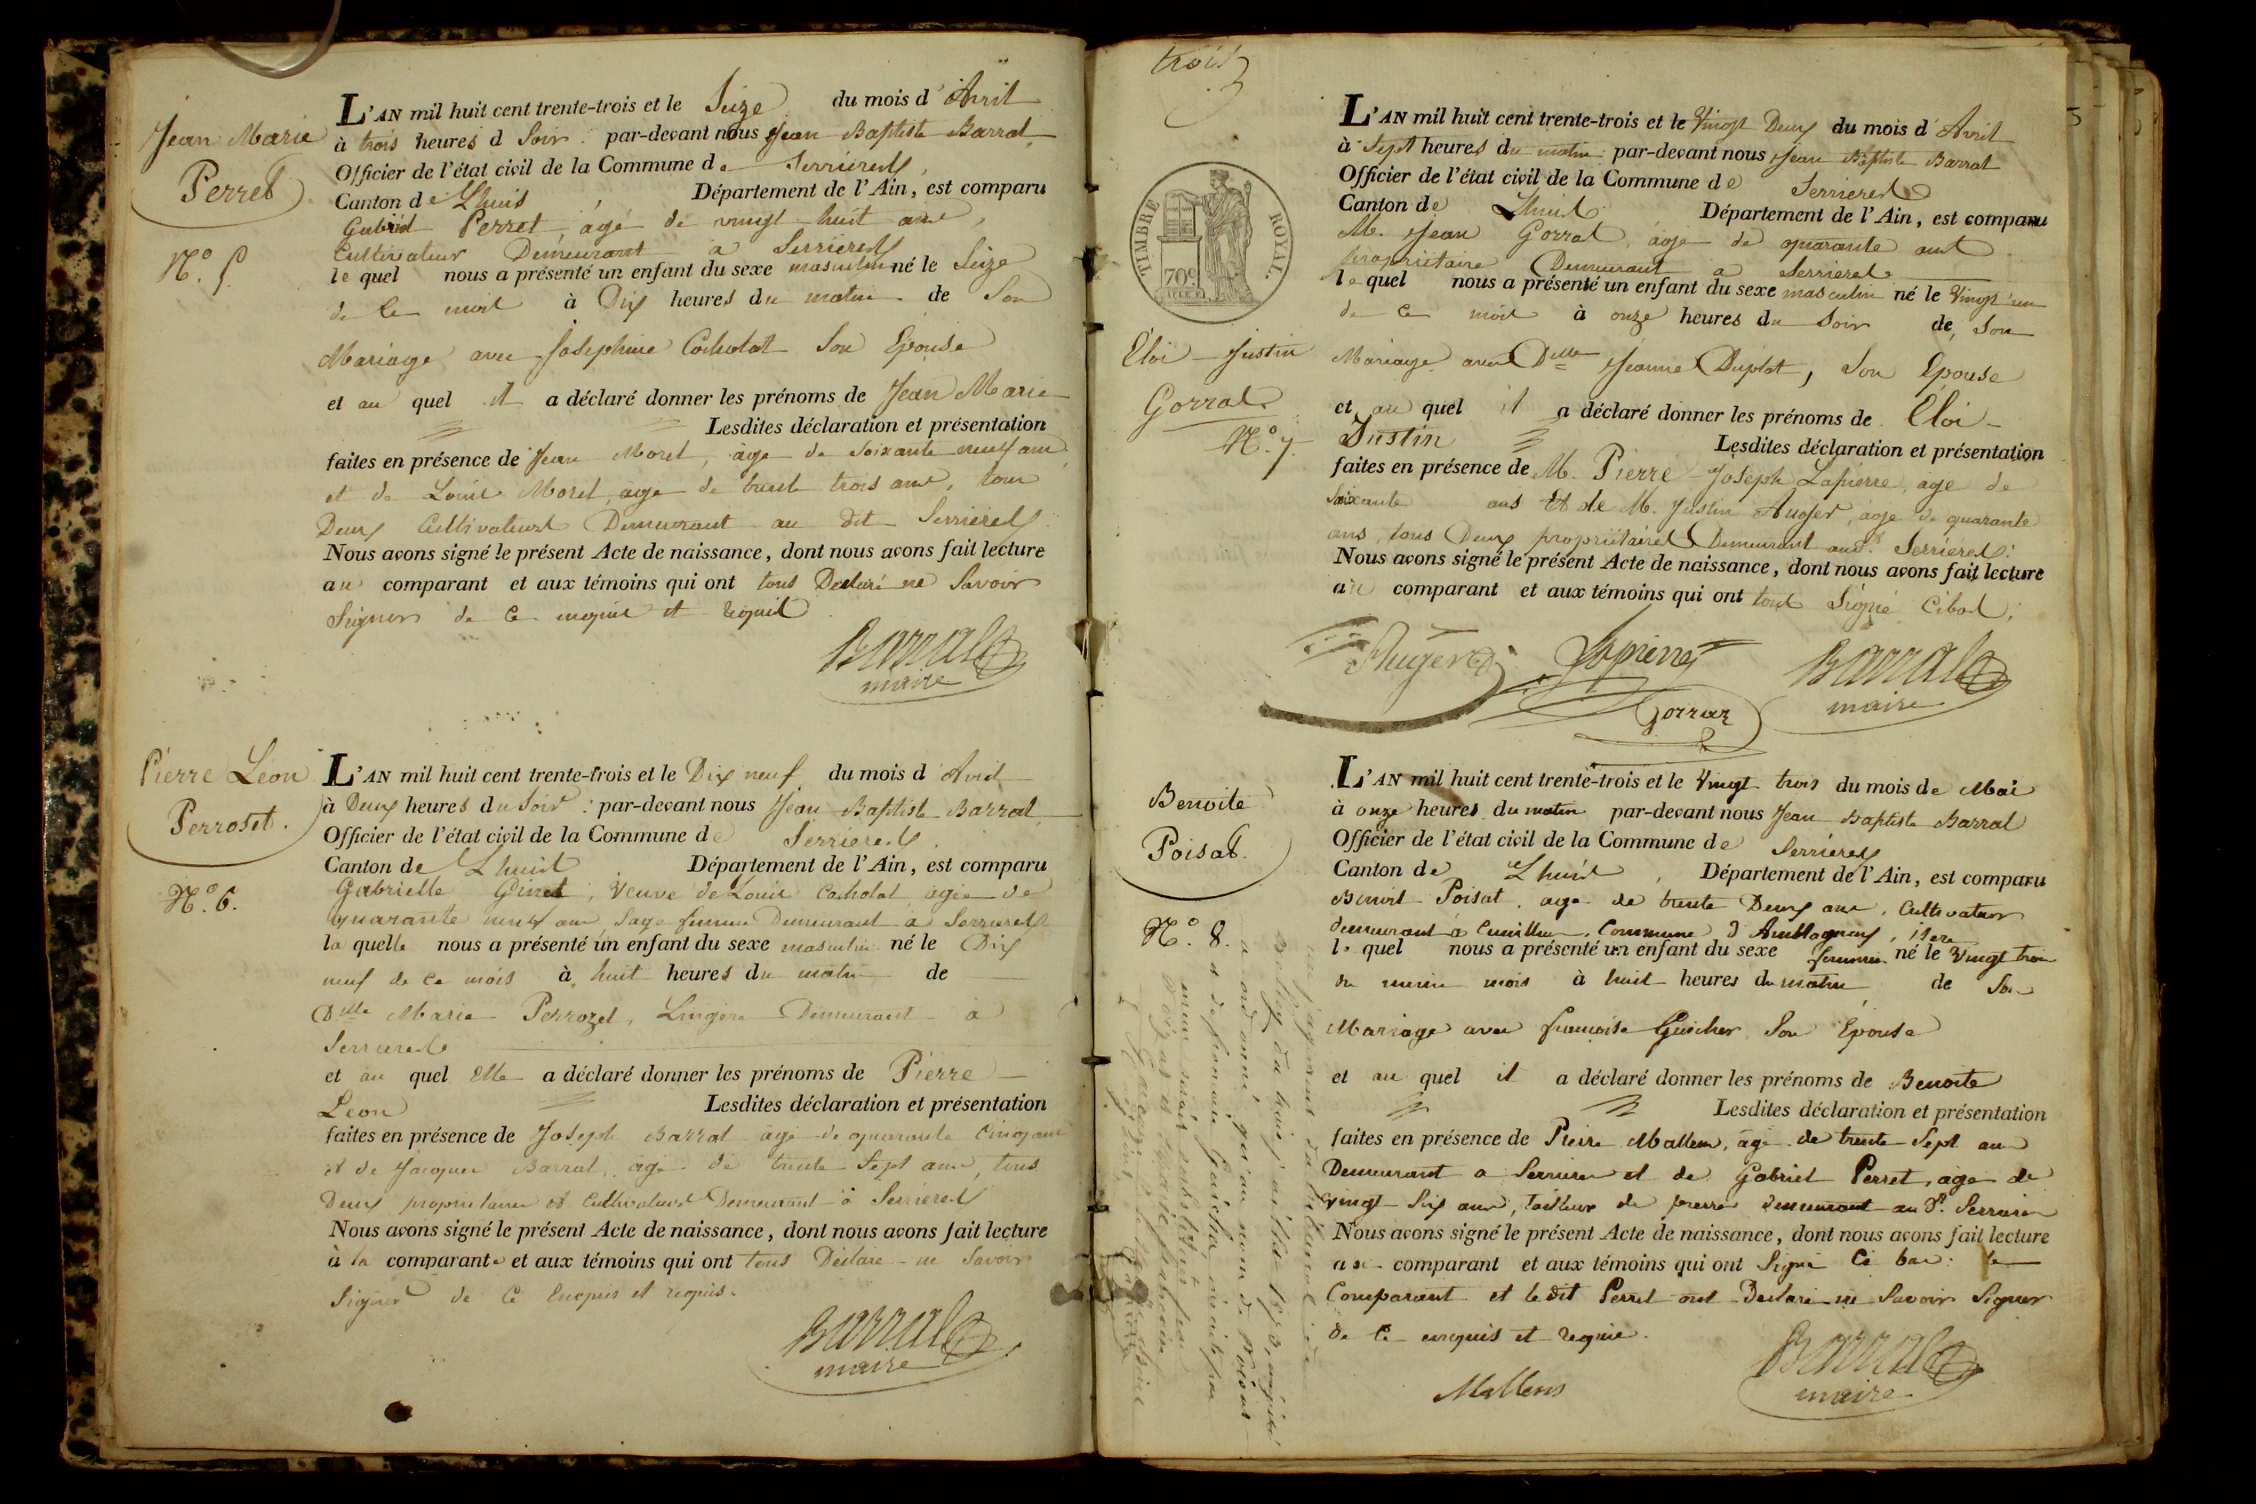 Jean Marie
Perret
N.º 5.
L'AN mil huit cent trente-trois et le Seize du mois d'Avril
à trois heures d Soir par-devant nous Jean Baptiste Barral
Officier de l'état civil de la Commune de Serrieres
Canton de Lhuis Département de l'Ain, est comparu
Gabriel Perret, âgé de vingt huit ans,
Cultivateur Demeurant a Serrieres
le quel nous a présenté un enfant du sexe masculin né le Seize
de Ce mois à Dix heures du matin de Son
Mariage avec Josephine Cochotat Son Epouse
et au quel il a déclaré donner les prénoms de Jean Marie
Lesdites déclaration et présentation
faites en présence de Jean Morel, age de Soixante neuf ans,
et de Louis Morel, age de trente trois ans, tous
Deux Cultivateurs Demeurant au dit Serrieres
Nous avons signé le présent Acte de naissance, dont nous avons fait lecture
au comparant et aux témoins qui ont tous Declaré ne Savoir
Signer de Ce enquis et requis
Barral
maire
Pierre Léon
Perroset.
N.º 6.
L'AN mil huit cent trente-trois et le Dix neuf du mois d'Avril
à Deux heures du Soir : par-devant nous Jean Baptiste Barral
Officier de l'état civil de la Commune de Serrieres
Canton de Lhuis Département de l'Ain, est comparu
Gabrielle Ginet, Veuve de Louis Cochotat agée de
quarante neuf ans, Sage femme Demeurant à Serrieres
la quelle nous a présenté un enfant du sexe masculin né le Dix
neuf de ce mois à huit heures du matin de
Dlle Marie Perrozet, Lingère Demeurant à
Serrieres
et au quel Elle a déclaré donner les prénoms de Pierre
Leon Lesdites déclaration et présentation
faites en présence de Joseph Barral agé de quarante Cinq ans
et de Jacques Barral, agé de trente Sept ans, tous
Deux proprietaires et Cultivateurs Demeurant à Serrieres
Nous avons signé le présent Acte de naissance, dont nous avons fait lecture
à la comparante et aux témoins qui ont tous Déclaré ne Savoir
Signer de Ce Enquis et requis.
Barral
maire
trois
TIMBRE ROYAL.
70c
Eloi Justin
Gorrat
N.º 7.
L'AN mil huit cent trente-trois et le Vingt Deux du mois d'Avril
à Sept heures du matin par-devant nous Jean Baptiste Barral
Officier de l'état civil de la Commune de Serrieres
Canton de Lhuis Département de l'Ain, est comparu
M. Jean Gorrat, agé de quarante ans
proprietaire Demeurant a Serrieres
le quel nous a présenté un enfant du sexe masculin né le Vingt un
de Ce mois à onze heures du Soir de Son
Mariage avec Dlle Jeanne Duplat, Son Epouse
et au quel il a déclaré donner les prénoms de Eloi
Justin Lesdites déclaration et présentation
faites en présence de M. Pierre Joseph Lapierre, age de
Soixante ans Et de M. Justin Auger, age de quarante
ans, tous Deux propriétaires Demeurant aud. Serrieres.
Nous avons signé le présent Acte de naissance, dont nous avons fait lecture
au comparant et aux témoins qui ont tous Signé Cibas.
Auger Lapierre Barral
Gorrat maire
Benoite
Poisat.
N.º 8.
L'AN mil huit cent trente-trois et le Vingt trois du mois de Mai
à onze heures du matin par-devant nous Jean Baptiste Barral
Officier de l'état civil de la Commune de Serrieres
Canton de Lhuis, Département de l'Ain, est comparu
Benoit Poisat, age de trente Deux ans, Cultivateur
demeurant à Commune d'Amblagneux, isere
le quel nous a présenté un enfant du sexe feminin né le Vingt trois
du meme mois à huit heures du matin de Son
Mariage avec françoise Guicher Son Epouse
et au quel il a déclaré donner les prénoms de Benoite
Lesdites déclaration et présentation
faites en présence de Pierre Mallens, âgé de trente Sept ans
Demeurant a Serrieres et de Gabriel Perret, age de
vingt Six ans, tailleur de pierre demeurant au d. Serrieres
Nous avons signé le présent Acte de naissance, dont nous avons fait lecture
au comparant et aux témoins qui ont Signé Ci bas : le
Comparant et le dit Perret ont Déclaré ne Savoir Signer
de Ce enquis et requis.
Mallens
Barral
maire